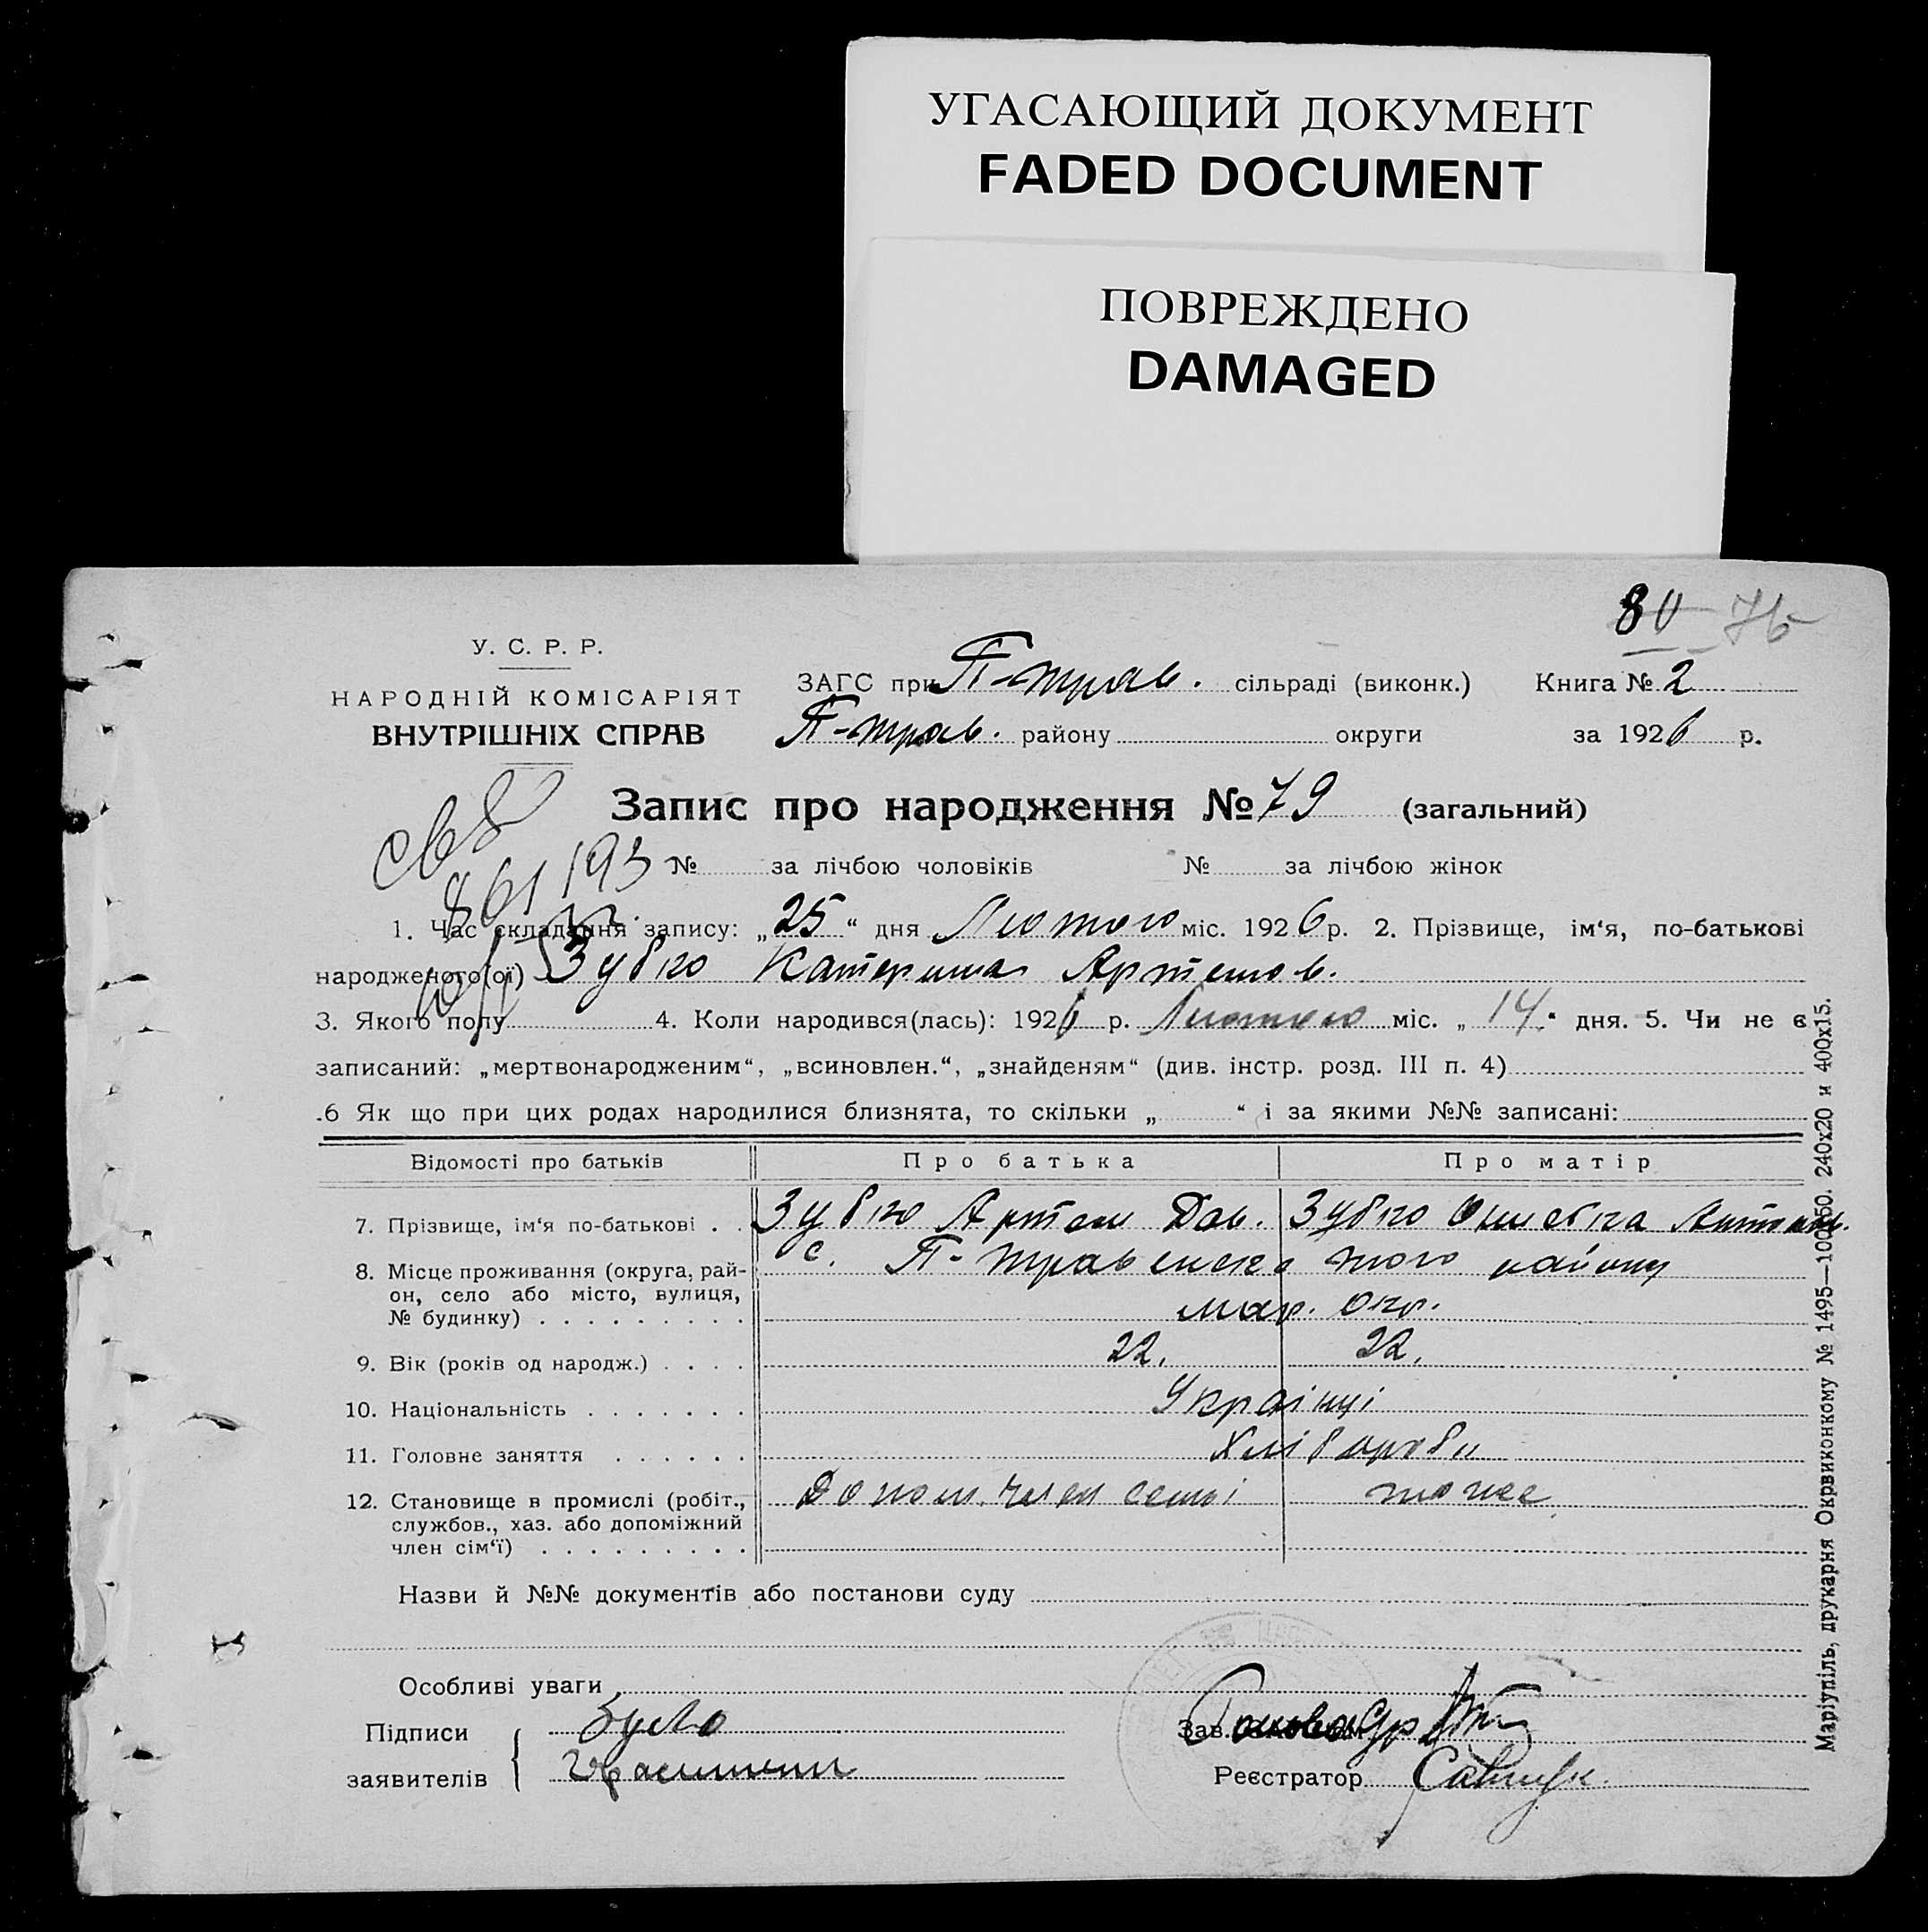 УГАСАЮЩИЙ ДОКУМЕНТ
FADED DOCUMENT
ПОВРЕЖДЕНО
DAMAGED
80 76
У. С. Р. Р.
НАРОДНІЙ КОМІСАРІЯТ
ВНУТРІШНІХ СПРАВ
ЗАГС при П-трав. сільраді (виконк.) Книга № 2
П-трав. району округи за 1926 р.
Запис про народження № 79 (загальний)
№ за лічбою чоловіків № за лічбою жінок
1. Час складання запису: „25“ дня Лютого міс. 1926 р. 2. Прізвище, ім‘я, по-батькові
народженого(ої) Зубко Катерина Артемов.
3. Якого полу 4. Коли народився(лась): 1926 р. Лютого міс. „14“ дня. 5. Чи не є
записаний: „мертвонародженим“, „всиновлен.“, „знайденям“ (див. інстр. розд. III п. 4)
.6 Як що при цих родах народилися близнята, то скільки „ “ і за якими №№ записані:
Відомості про батьків Про батька Про матір
7. Прізвище, ім‘я по-батькові . . Зубко Артем Дав. Зубко Антонов.
8. Місце проживання (округа, рай- с. П-травенска того району
он, село або місто, вулиця,
№ будинку) . . . . . . . . . мар. окр.
9. Вік (років од народж.) . . . . 22. 22.
10. Національність . . . . . . . Українці
11. Головне заняття . . . . . . Хлібороби
12. Становище в промислі (робіт., Допом. член семьі тоже
службов., хаз. або допоміжний
член сім‘ї) . . . . . . . . .
Назви й №№ документів або постанови суду
Особливі уваги
Підписи Зубко
заявителів
Зав.
Реєстратор Савчук
Маріупіль, друкарня Окрвиконкому № 1495—10050. 240x20 и 400x15.